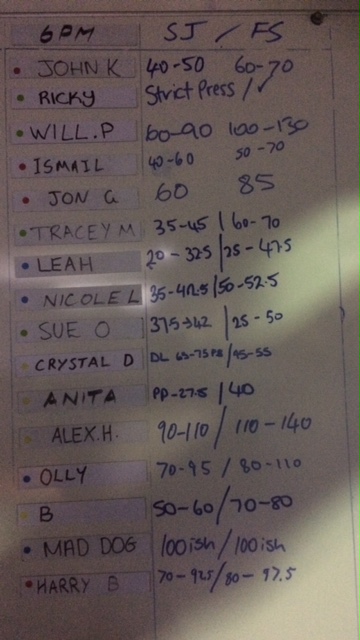 6PM SJ / FS
JOHN K 40-50 60-70
RICKY Strict Press / ✓
WILL.P 60-90 100-130
ISMAIL 40-60 50-70
JON G 60 85
TRACEY M 35-45 | 60-70
LEAH 20-32.5 | 25-47.5
NICOLE L 35-42.5 | 50-52.5
SUE O 37.5-342 | 25-50
CRYSTAL D DL 65-75 / 45-55
ANITA PP-27.5 | 40
ALEX.H. 90-110 / 110-140
OLLY 70-95 / 80-110
B 50-60 / 70-80
MAD DOG 100ish / 100ish
HARRY B 70-92.5 / 80-97.5